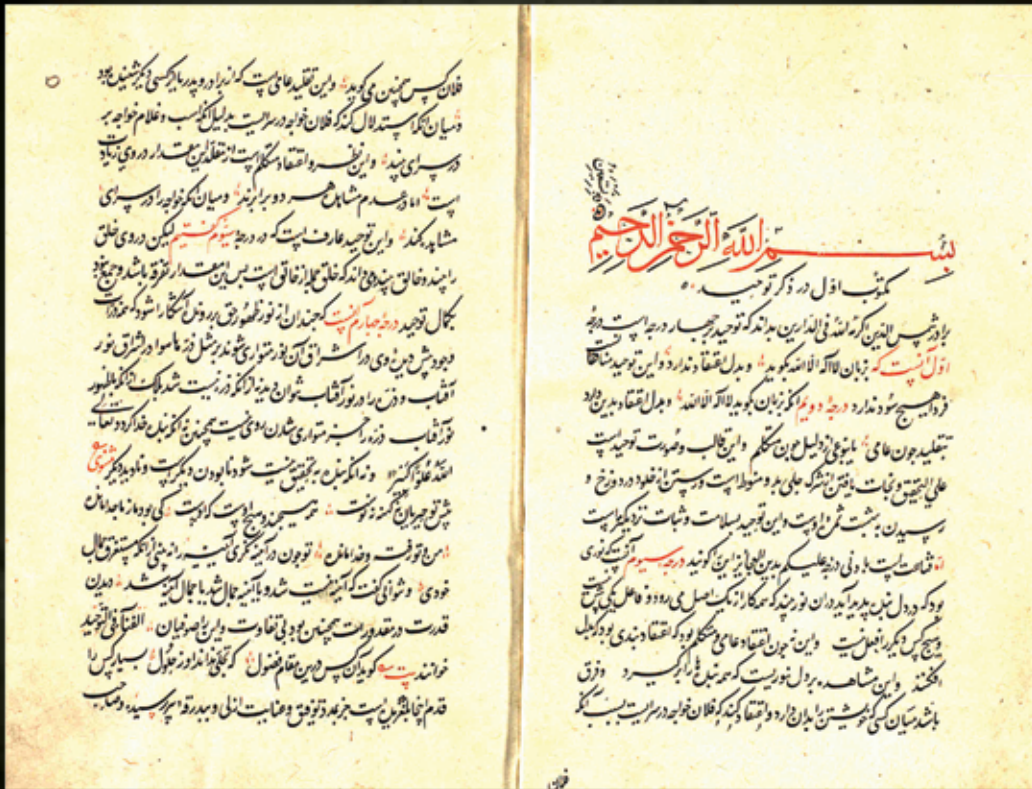 بسم الله الرحمن الرحیم
مکتوب اول در ذکر توحید
برادر شمس الدین اکرمه الله فی الدارین بداند که توحید بر چهار درجه است درجهٔ
اول آنست که بزبان لا اله الا الله بگوید و بدل اعتقاد ندارد و این توحید منافقان
فردا هیچ سود ندارد درجه دویم آنکه بزبان بگوید لا اله الا الله و بدل اعتقاد بدین دارد
بتقلید چون عامی یا بنوعی از دلیل چون متکلم و این قالب و صورت توحید است
علی التحقیق و نجات یافتن از شرک جلی بدو منوط است و رستن از خلود در دوزخ و
رسیدن به بهشت ثمره اوست و این توحید بسلامت و ثبات نزدیکتر است
قناعت است علیکم بدین العجایز این گویند درجه سیوم آنست که نوری
بود که در دل پدید آید در آن نور بیند که همه کار از یک اصل می رود و فاعل یکی بیش نیست
و هیچ کس دیگر را فعل نیست و این نه چون اعتقاد عامی و متکلم بود که اعتقاد بندی بود که بدل
افکنند و این مشاهده بر دل نوریست که همه را برگیرد و فرق
باشد میان کسی که خویشتن را بدان دارد و اعتقاد کند که فلان خواجه در سرایست بسبب آنکه
فلان کس چنین می گوید و این تقلید عامی است که از برادر و پدر یا از کسی دیگر شنیده بود
و میان آنکه استدلال کند که فلان خواجه در سرایست بدلیل آنکه اسب و غلام خواجه بر
در سرای بیند و این نظر و اعتقاد متکلم است از مقلد این مقدار در وی زیادت
است اما در عدم مشاهده هر دو برابرند و میان آنکه خواجه را در سرای
مشاهده کند و این توحید عارف است که در درجه سیوم گفتیم لیکن در وی خلق
را بیند و خالق بیند و می داند که خلق جمله از خالق است پس این مقدار تفرقه باشد و جمع نبود
کمال توحید درجه چهارم آنست که چندان از نور ظهور حق بر روندهٔ آشکارا شود که همه ذرات
وجود پیش دیدهٔ وی در اشراق آن نور متواری شوند بر مثل ذرهٔ ها در اشراق نور
آفتاب و ذره را در نور آفتاب نتوان دید نه از آنکه ذره نیست شد بلک از آنکه با ظهور
نور آفتاب ذره را جز متواری شدن روی نیست همچنین نه آنکه بنده خدا گردد تعالی
الله عن ذلک علوا کبیرا و نه آنکه بنده به تحقیق نیست شود نابودن دیگرست و نادیدن دیگر مثنوی
پیش توحید او نه کهنه نه نوست همه هیچند هیچ اوست که اوست کی بود ما ز ما جدا مانده
من و تو رفته و خدا مانده تو چون در آینه نگری آیینه را نه بینی از آنکه مستغرق جمال
خودی و نتوانی گفت که آینه نیست شد و یا آینه جمال شد یا جمال آینه شد دیدن
قدرت در مقدورات همچنین بود بی تفاوت و این را صوفیان الفناء فی التوحید
خوانند بیت گوید آن کس درین مقام فضول که تجلی نداند او ز حلول بسیار کس را
قدم اینجا بلغزیده است جز بمدد توفیق و عنایت ازلی و بدرقهٔ پیر رسیده و صاحب
فلان